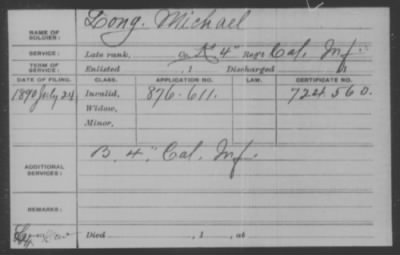 NAME OF SOLDIER: Long. Michael
SERVICE: Late rank, Co. K 4" Reg't Cal. Inf.
TERM OF SERVICE: Enlisted , 1 Discharged , 1
DATE OF FILING. CLASS. APPLICATION NO. LAW. CERTIFICATE NO.
1890 July 24 Invalid, 876.611. 724.560.
Widow,
Minor,
ADDITIONAL SERVICES: B. 4" Cal. Inf.
REMARKS:
Died , 1 , at